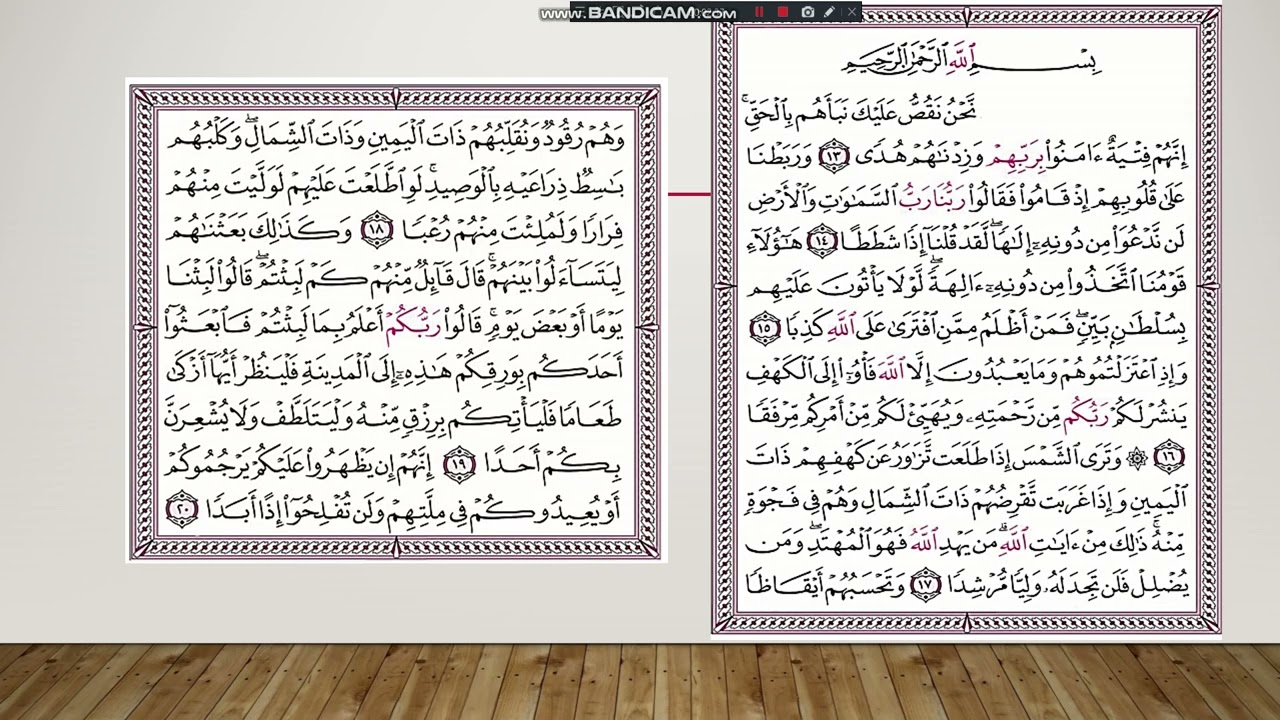 www.BANDICAM.com
بِسْمِ ٱللَّهِ ٱلرَّحْمَٰنِ ٱلرَّحِيمِ
نَّحْنُ نَقُصُّ عَلَيْكَ نَبَأَهُم بِٱلْحَقِّ ۚ
إِنَّهُمْ فِتْيَةٌ ءَامَنُوا۟ بِرَبِّهِمْ وَزِدْنَٰهُمْ هُدًى ١٣ وَرَبَطْنَا
عَلَىٰ قُلُوبِهِمْ إِذْ قَامُوا۟ فَقَالُوا۟ رَبُّنَا رَبُّ ٱلسَّمَٰوَٰتِ وَٱلْأَرْضِ
لَن نَّدْعُوَا۟ مِن دُونِهِۦٓ إِلَٰهًا ۖ لَّقَدْ قُلْنَآ إِذًا شَطَطًا ١٤ هَٰٓؤُلَآءِ
قَوْمُنَا ٱتَّخَذُوا۟ مِن دُونِهِۦٓ ءَالِهَةً ۖ لَّوْلَا يَأْتُونَ عَلَيْهِم
بِسُلْطَٰنٍۭ بَيِّنٍ ۖ فَمَنْ أَظْلَمُ مِمَّنِ ٱفْتَرَىٰ عَلَى ٱللَّهِ كَذِبًا ١٥
وَإِذِ ٱعْتَزَلْتُمُوهُمْ وَمَا يَعْبُدُونَ إِلَّا ٱللَّهَ فَأْوُۥٓا۟ إِلَى ٱلْكَهْفِ
يَنشُرْ لَكُمْ رَبُّكُم مِّن رَّحْمَتِهِۦ وَيُهَيِّئْ لَكُم مِّنْ أَمْرِكُم مِّرْفَقًا
١٦ ۞ وَتَرَى ٱلشَّمْسَ إِذَا طَلَعَت تَّزَٰوَرُ عَن كَهْفِهِمْ ذَاتَ
ٱلْيَمِينِ وَإِذَا غَرَبَت تَّقْرِضُهُمْ ذَاتَ ٱلشِّمَالِ وَهُمْ فِى فَجْوَةٍ
مِّنْهُ ۚ ذَٰلِكَ مِنْ ءَايَٰتِ ٱللَّهِ ۗ مَن يَهْدِ ٱللَّهُ فَهُوَ ٱلْمُهْتَدِ ۖ وَمَن
يُضْلِلْ فَلَن تَجِدَ لَهُۥ وَلِيًّا مُّرْشِدًا ١٧ وَتَحْسَبُهُمْ أَيْقَاظًا
وَهُمْ رُقُودٌ ۚ وَنُقَلِّبُهُمْ ذَاتَ ٱلْيَمِينِ وَذَاتَ ٱلشِّمَالِ ۖ وَكَلْبُهُم
بَٰسِطٌ ذِرَاعَيْهِ بِٱلْوَصِيدِ ۚ لَوِ ٱطَّلَعْتَ عَلَيْهِمْ لَوَلَّيْتَ مِنْهُمْ
فِرَارًا وَلَمُلِئْتَ مِنْهُمْ رُعْبًا ١٨ وَكَذَٰلِكَ بَعَثْنَٰهُمْ
لِيَتَسَآءَلُوا۟ بَيْنَهُمْ ۚ قَالَ قَآئِلٌ مِّنْهُمْ كَمْ لَبِثْتُمْ ۖ قَالُوا۟ لَبِثْنَا
يَوْمًا أَوْ بَعْضَ يَوْمٍ ۚ قَالُوا۟ رَبُّكُمْ أَعْلَمُ بِمَا لَبِثْتُمْ فَٱبْعَثُوٓا۟
أَحَدَكُم بِوَرِقِكُمْ هَٰذِهِۦٓ إِلَى ٱلْمَدِينَةِ فَلْيَنظُرْ أَيُّهَآ أَزْكَىٰ
طَعَامًا فَلْيَأْتِكُم بِرِزْقٍ مِّنْهُ وَلْيَتَلَطَّفْ وَلَا يُشْعِرَنَّ
بِكُمْ أَحَدًا ١٩ إِنَّهُمْ إِن يَظْهَرُوا۟ عَلَيْكُمْ يَرْجُمُوكُمْ
أَوْ يُعِيدُوكُمْ فِى مِلَّتِهِمْ وَلَن تُفْلِحُوٓا۟ إِذًا أَبَدًا ٢٠